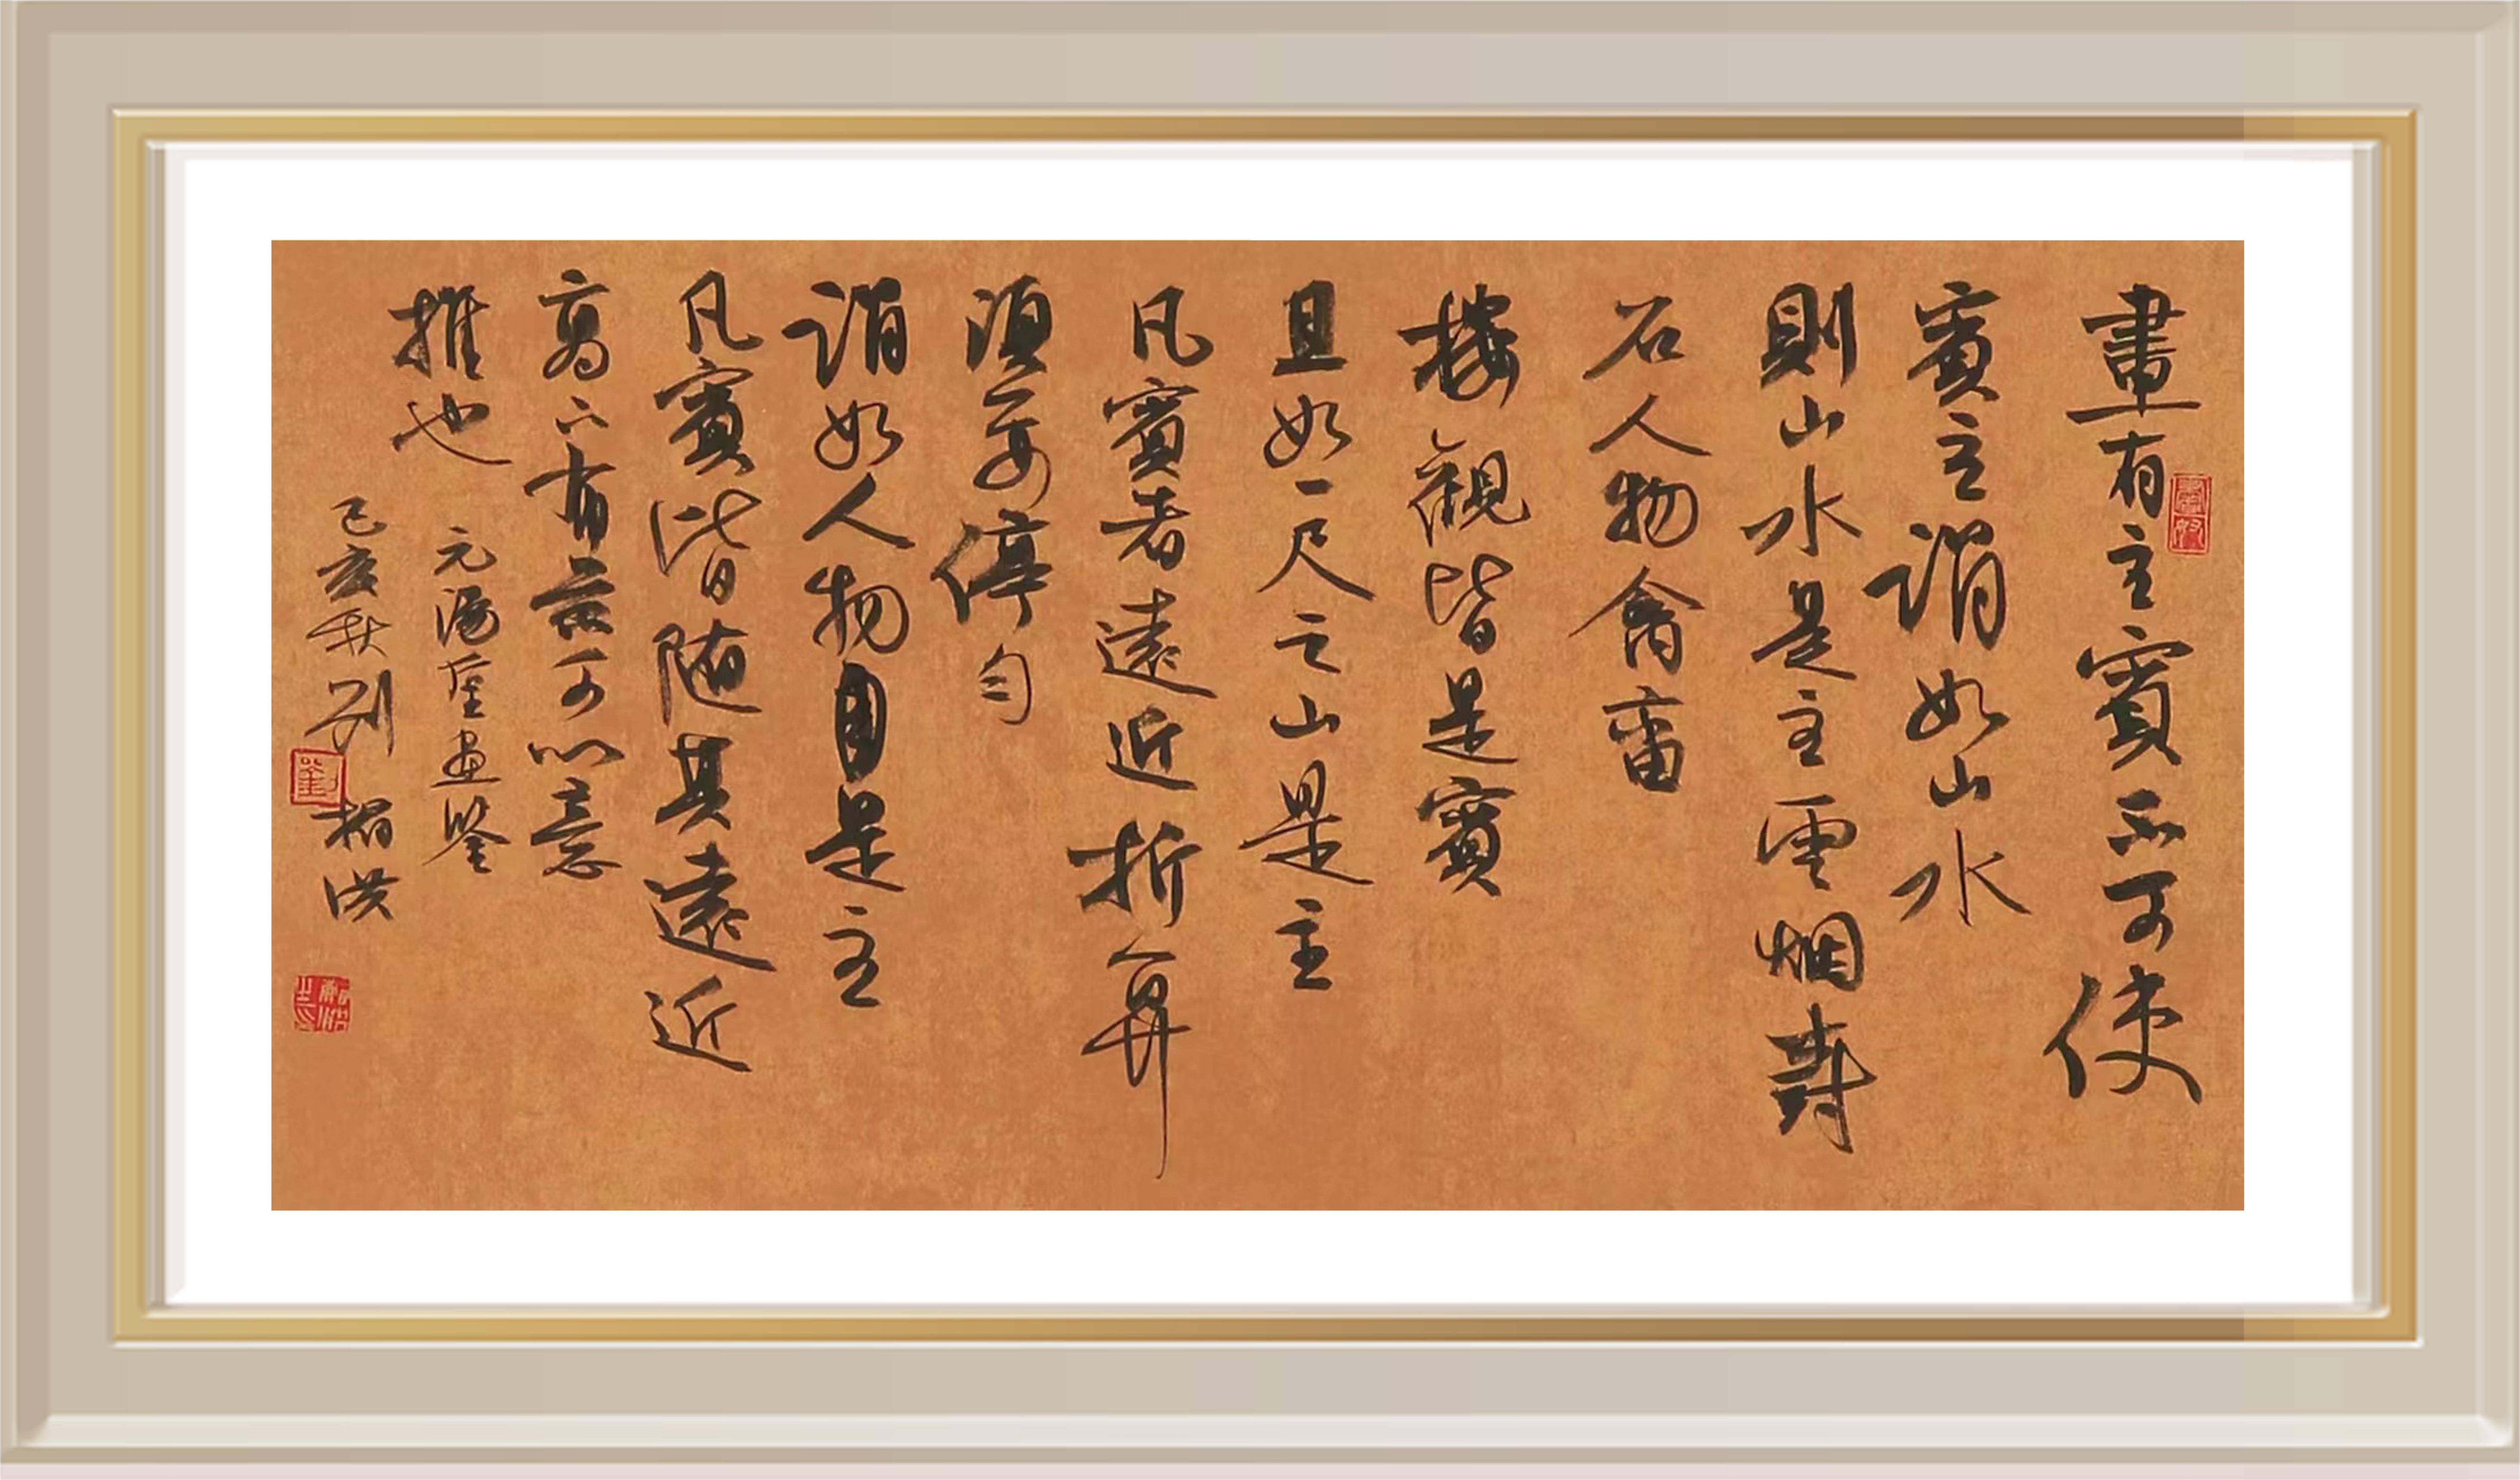 畫有主賓不可使
賓主謂如山水
則山水是主雲烟樹
石人物禽畜
樓觀皆是賓
且如一尺之山是主
凡賓者遠近折算
須要停勻
謂如人物自是主
凡賓皆随其遠近
高下布景可以意
推也
元湯垕畫鑒
己亥秋劉洪
劉